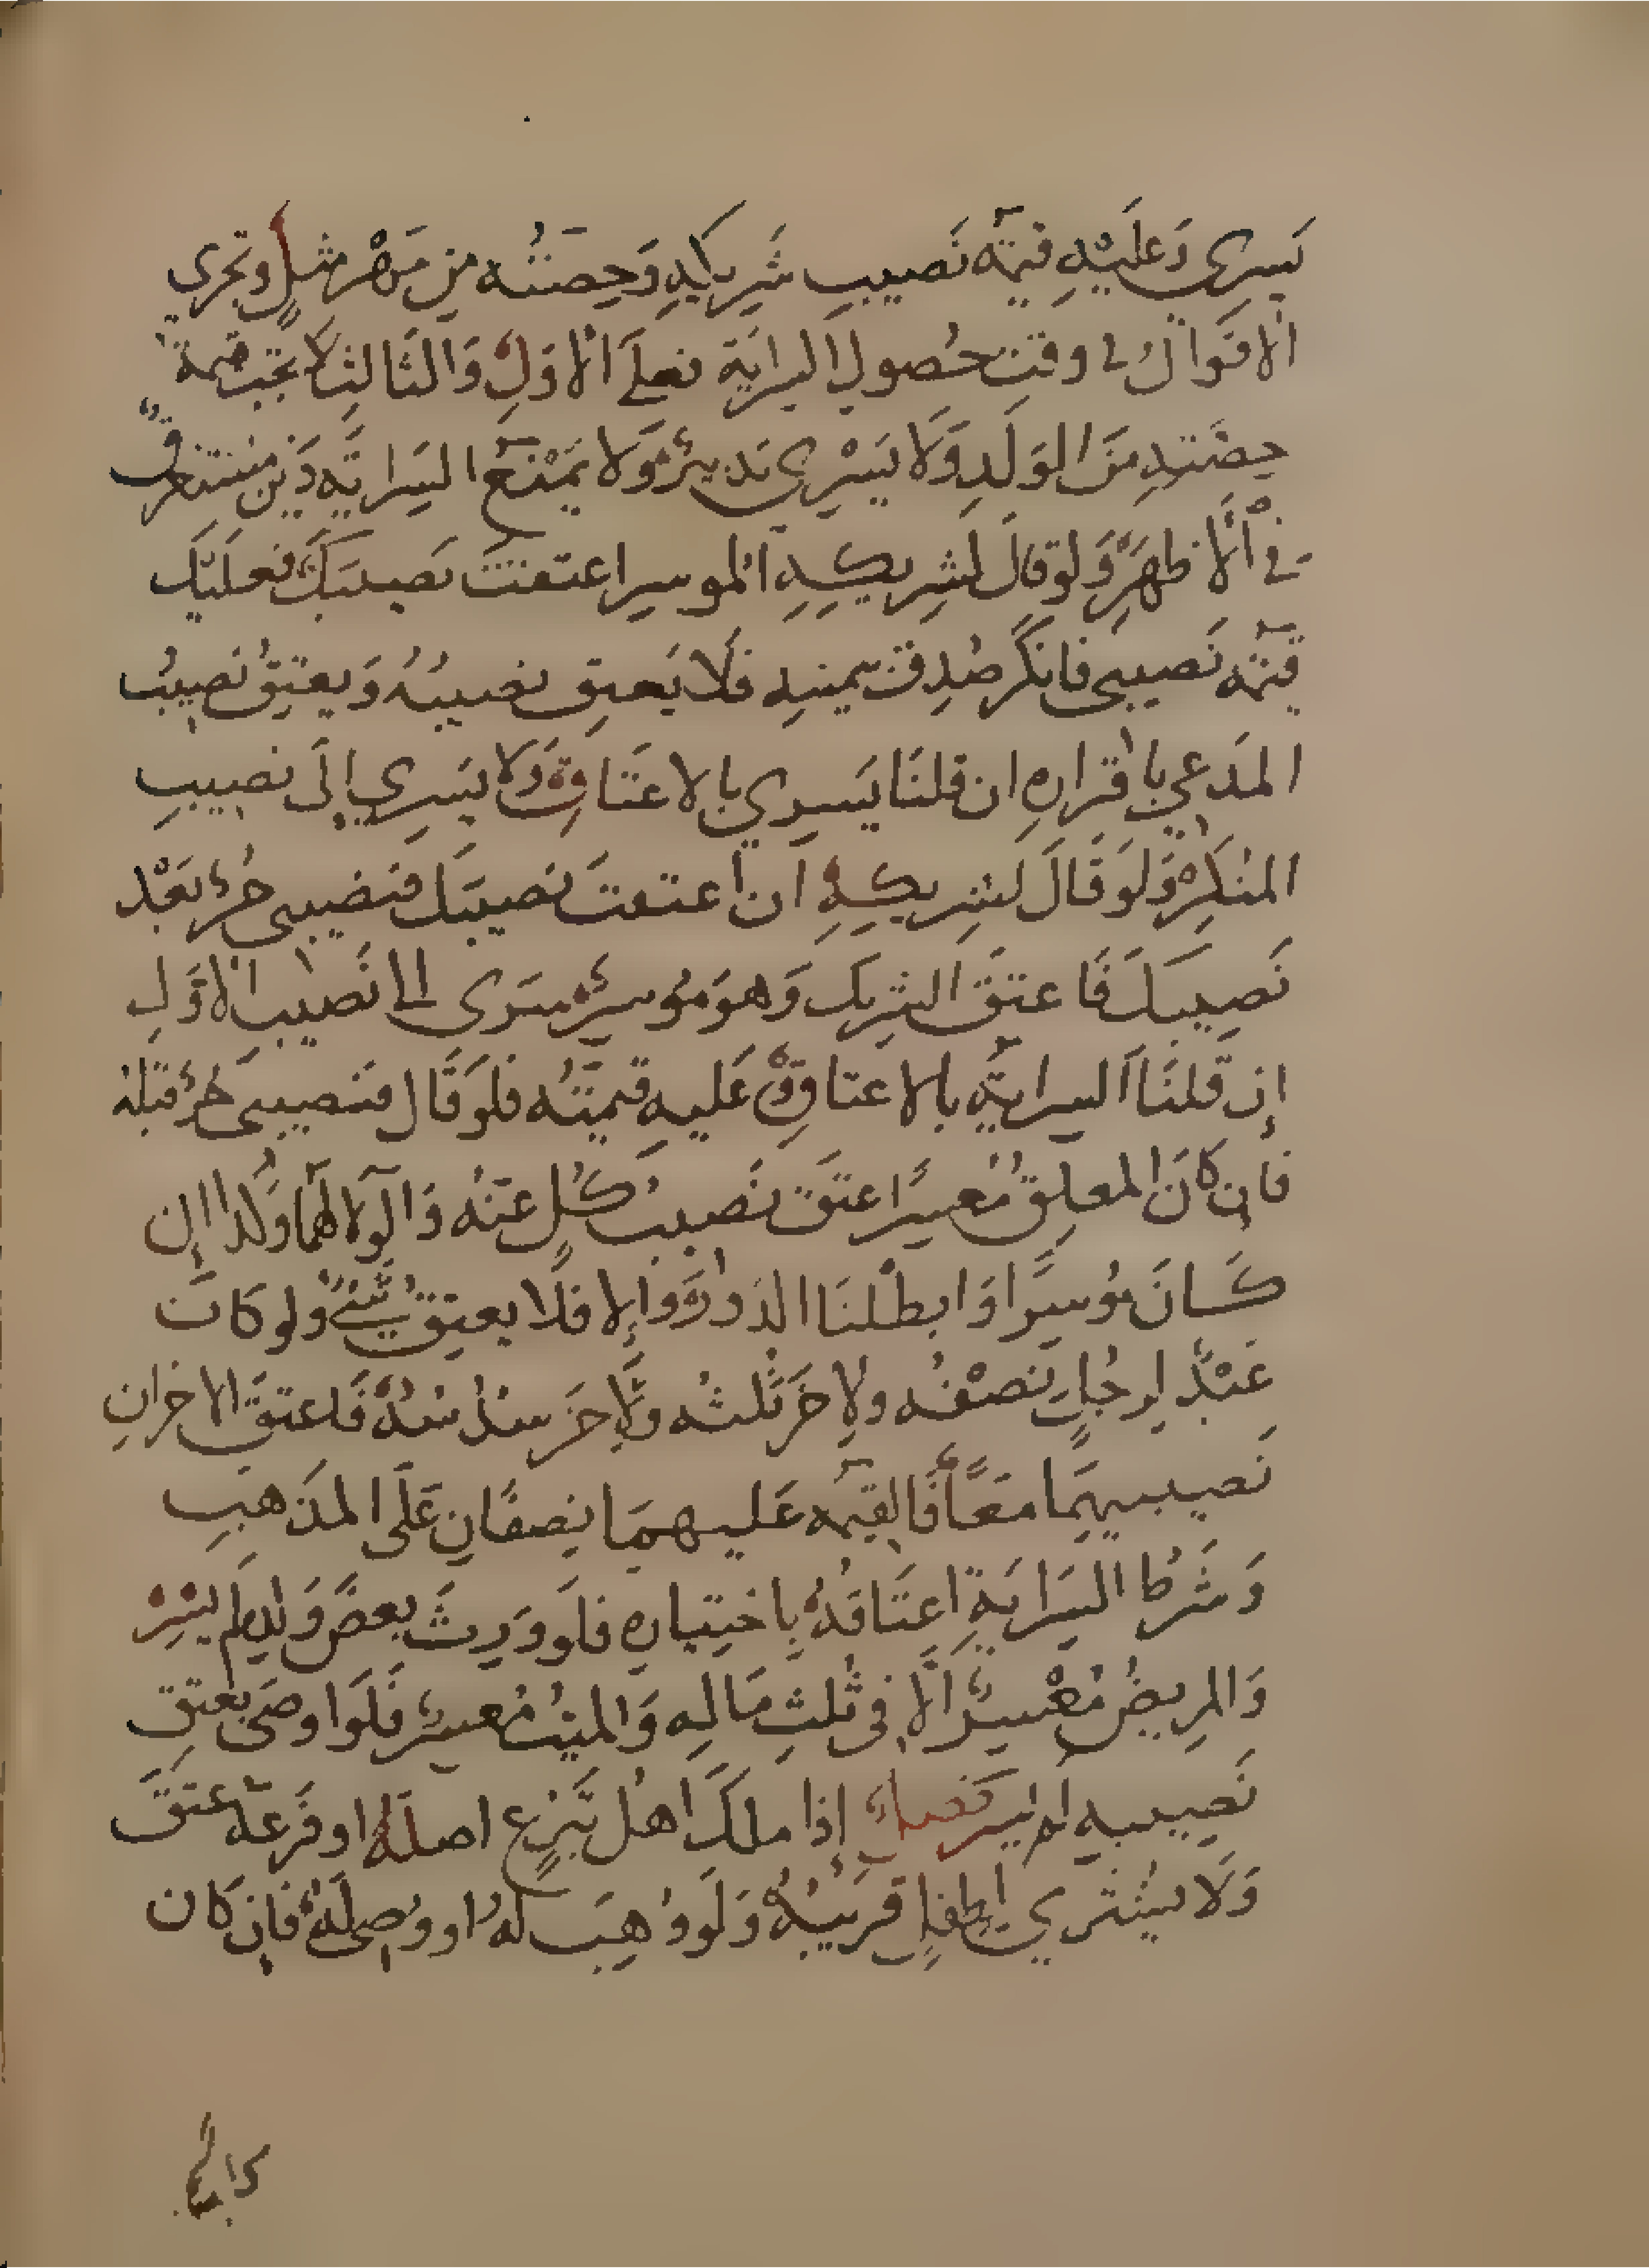 يَسري وَعليْهِ قيمَة نَصيبِ شَريكِهِ وَحِصّتُه مِن مَهْر مثلٍ وتجري
الاقوالُ في وقتِ حُصولِ السِرايَة فعلَى الاوَلِ وَالثالثِ لا تجب قيمة
حِصّتهِ مِنَ الوَلَدِ وَلا يَسْرِي تدبيرٌ وَلا يَمْنَعُ السِرايَة دَيْن مستغرق
في الاظهَرِ وَلو قالَ لشريكِهِ الموسِر اعتقتَ نَصيبَكَ فعَليْك
قيمَة نَصيبي فانكر صُدِق بيمينِه فَلا يَعتِق نصيبُهُ وَيعتِقُ نصِيبُ
المدَعي باقرارِهِ ان قلنَا يَسرِي بالاعتَاقِ وَلا يَسري إلى نصيبِ
المنكِرِ وَلَو قالَ لشريكِهِ ان اعتقتَ نصيبَك فنصيبي حُرٌ بَعْد
نَصِيبكَ فَاعتقَ الشريك وَهوَ مُوسرٌ سَرَى الى نَصيب الاوَلِ
إن قلنَا السرايَة بالاعتاقِ وَعَليهِ قيمتُه فلَو قَال فنصيبي حُرٌ قبلهُ
فان كانَ المعلِق مُعسِرًا عتقَ نَصيبُ كُلٍ عنْهُ وَالولا لهمَا وَكذا إن
كَانَ مُوسِرًا وَابطلنَا الدورَ وَإلا فلا يعتِقُ شَيْءٌ ولو كَانَ
عَبْدٌ لرجُلٍ نصْفُه ولاخَر ثلثُه وَلاخَر سدسُهُ فَاعتقَ الاخرانِ
نَصيبيهِمَا معًا فَالقيمَة عَليهمَا نِصفَانِ عَلَى المذهَبِ
وَشَرطُ السِرَايَةِ اعتَاقُهُ باختيارِهِ فلَو وَرِثَ بعضَ وَلدِهِ لم يَسْرِ
وَالمرِيضُ مُعْسِرٌ الا فى ثلثِ مَالِه وَالميتُ مُعسِرٌ فَلَو اوصَى بعتِق
نَصيبِهِ لم يَسرِ فصلٌ إذا مَلكَ اهلُ تَبَرُعٍ اصلَهُ او فَرْعَهُ عَتقَ
وَلا يشتَري لطِفلٍ قريبُهُ وَلَو وُهِبَ لَهُ او وُصِىَ لَهُ فَان كَان